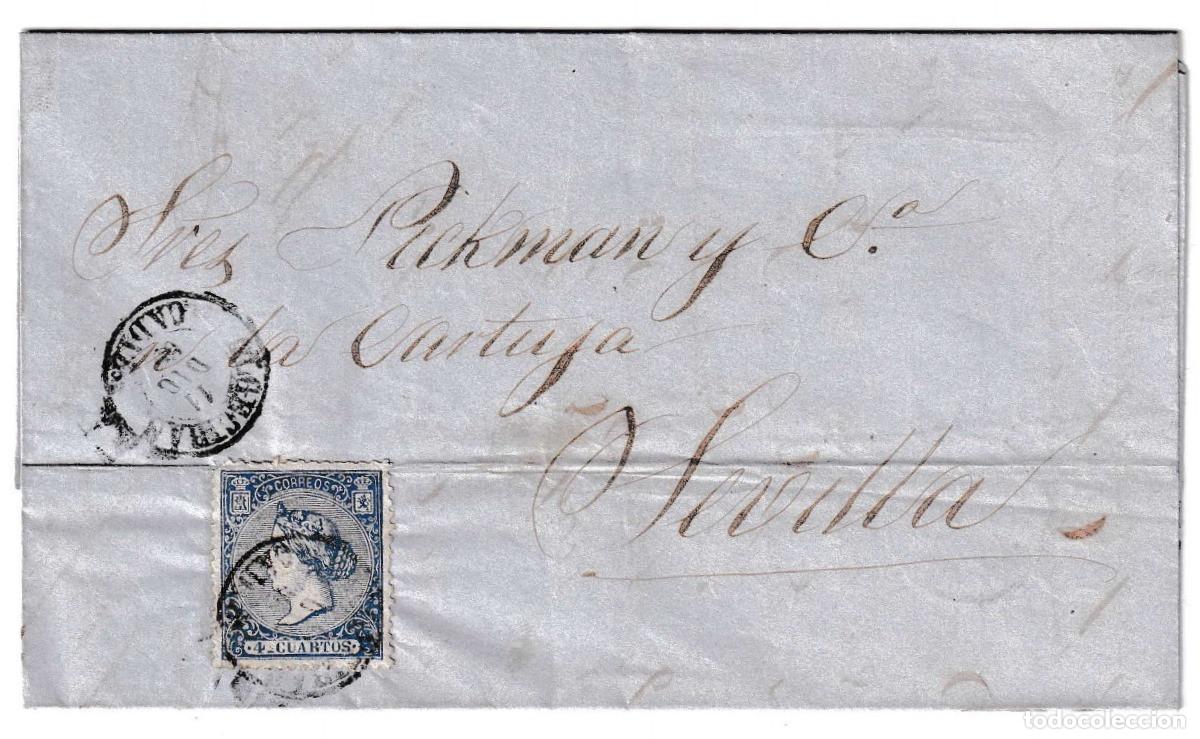 Sres Pickman y Cª
en la Cartuja
Sevilla
CADIZ
CORREOS
4 CUARTOS
todocoleccion